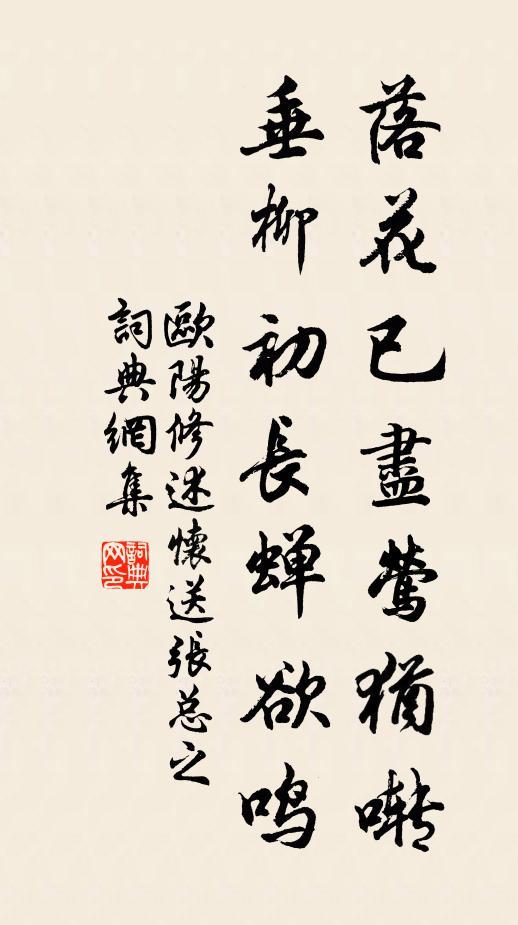 落花已盡鶯猶囀
垂柳初長蝉欲鸣
歐陽修述懷送張总之
詞典網集
詞典网印